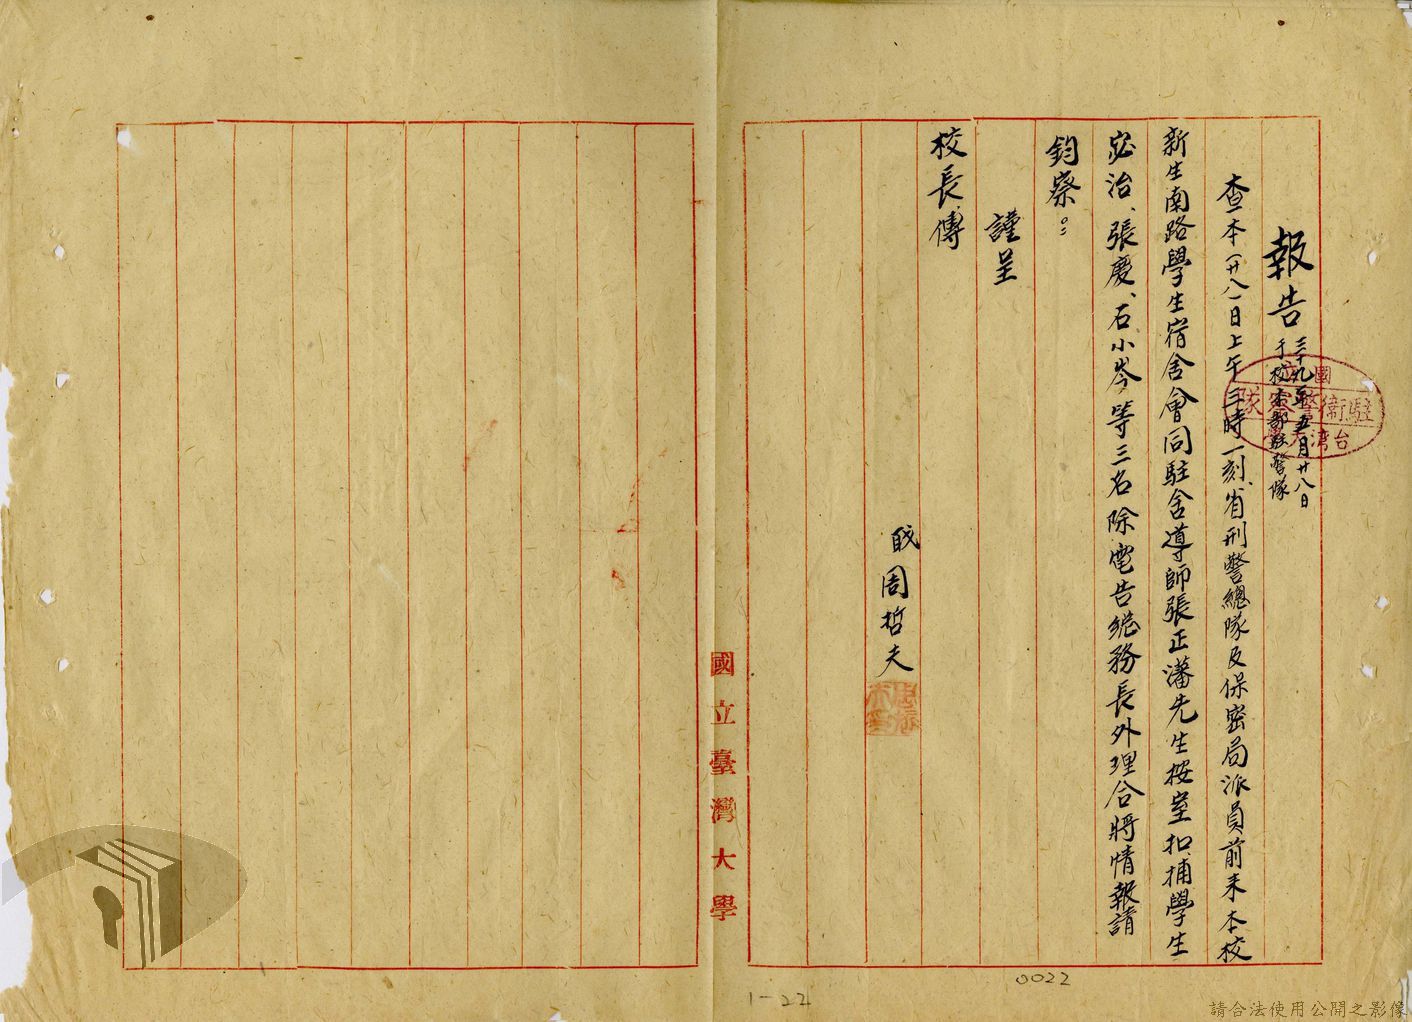 報告 三十九年五月廿八日
于校本部駐警隊
國立
駐衛警察隊
台湾大學
查本(廿八)日上午三時一刻、省刑警總隊及保密局派員前来本校
新生南路學生宿舍會同駐舍導師張正藩先生按室扣捕學生
宓治、張慶、石小岑等三名除電告總務長外理合將情報請
鈞察。
謹呈
校長傅
職周哲夫
國立臺灣大學
0022
1-22
請合法使用公開之影像